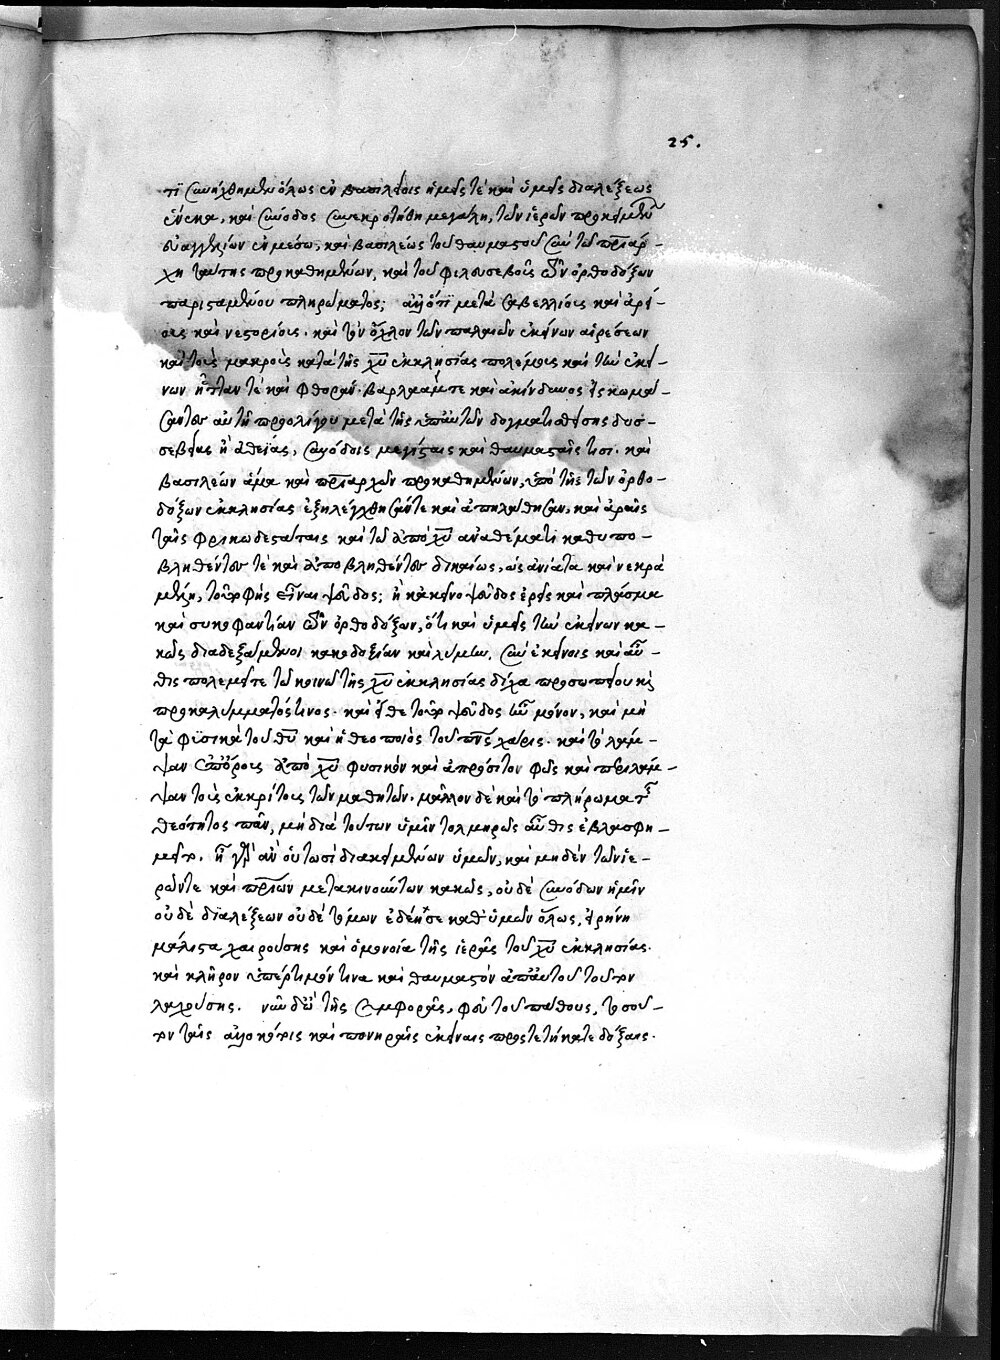 25.
τί συνήχθημεν ὅλως ἐν βασιλείοις ἡμεῖς τὲ καὶ ὑμεῖς διαλέξεως
ἕνεκα, καὶ σύνοδος συνεκροτήθη μεγάλη, τῶν ἱερῶν προκειμένων
εὐαγγελίων ἐν μέσω, καὶ βασιλέως τοῦ θαυμαστοῦ σὺν τῶ πριάρ-
χη ταύτης προκαθημένων, καὶ τοῦ φιλευσεβοῦς τῶν ὀρθοδόξων
παρισταμένου πληρώματος; ἀλλ' ὅτι μετὰ σαβελλίους καὶ ἀρεί-
ους καὶ νεστορίους. καὶ τὸν ὄχλον τῶν παλαιῶν ἐκείνων αἱρέσεων
καὶ τοὺς μακροὺς κατὰ τῆς χυ ἐκκλησίας πολέμους καὶ τὴν ἐκεί-
νων ἧτταν τὲ καὶ φθοράν. βαρλαάμ τε καὶ ἀκίνδυνος εἰσκωμα-
σάντων αὐτῆ πρὸ ὀλίγου μετὰ τῆς ὑπ' αὐτῶν δογματισθείσης δυσ-
σεβείας ἢ ἀθεΐας, συνόδοις μεγίσταις καὶ θαυμασταῖς τισι. καὶ
βασιλέων ἅμα καὶ πριαρχῶν προκαθημένων, ὑπὸ τῆς τῶν ὀρθο-
δόξων ἐκκλησίας ἐξηλέγχθησάν τε καὶ ἀπηλάθησαν, καὶ ἀραῖς
ταῖς φρικωδεστάταις καὶ τῶ ἀπὸ χυ ἀναθέματι καθυπο-
βληθέντων τὲ καὶ ἀποβληθέντων δικαίως, ὡς ἀνίατα καὶ νεκρὰ
μέλη, τοῦτο φὴς εἶναι ψεῦδος; ἢ κἀκεῖνο ψεῦδος ἐρεῖς καὶ πλάσμα
καὶ συκοφαντίαν τῶν ὀρθοδόξων, ὅτι καὶ ὑμεῖς τὴν ἐκείνων κα-
κῶς διαδεξάμενοι κακοδοξίαν καὶ λύμην, σὺν ἐκείνοις καὶ αὖ-
θις πολεμεῖτε τῶ κοινῶ τῆς χυ ἐκκλησίας δίχα προσωπείου κ(αὶ)
προκαλύμματός τινος. καὶ εἴθε τοῦτο ψεῦδος ἦν μόνον, καὶ μὴ
τὰ φυσικὰ τοῦ θυ καὶ ἡ θεοποιὸς τοῦ πνς χάρις. καὶ τὸ λάμ-
ψαν ἐπ' ὄρους ἀπὸ χυ φυσικὸν καὶ ἀπρόσιτον φῶς καὶ περιλάμ-
ψαν τοὺς ἐκκρίτους τῶν μαθητῶν. μᾶλλον δὲ καὶ τὸ πλήρωμα τῆς
θεότητος πᾶν, μὴ διὰ τούτων ὑμῖν τολμηρῶς αὖθις ἐβλασφη-
μεῖτο. ἦ γὰρ ἂν οὑτωσὶ διακειμένων ὑμῶν, καὶ μηδὲν τῶν ἱε-
ρῶν τε καὶ πρίων μετακινούντων κακῶς, οὐδὲ συνόδων ἡμῖν
οὐδὲ διαλέξεων οὐδὲ τόμων ἐδέησε καθ' ὑμῶν ὅλως, εἰρήνη
μάλιστα χαιρούσης καὶ ὁμονοία τῆς ἱερᾶς τοῦ χυ ἐκκλησίας.
καὶ κλῆρον ὑπέρτιμόν τινα καὶ θαυμαστὸν ἀπ' αὐτοῦ τοῦτον
λαχούσης. νῦν δὲ τῆς συμφορᾶς, φεῦ τοῦ πάθους, τοσοῦ-
τον ταῖς ἀλλοκότοις καὶ πονηραῖς ἐκείναις προστετήκατε δόξαις.